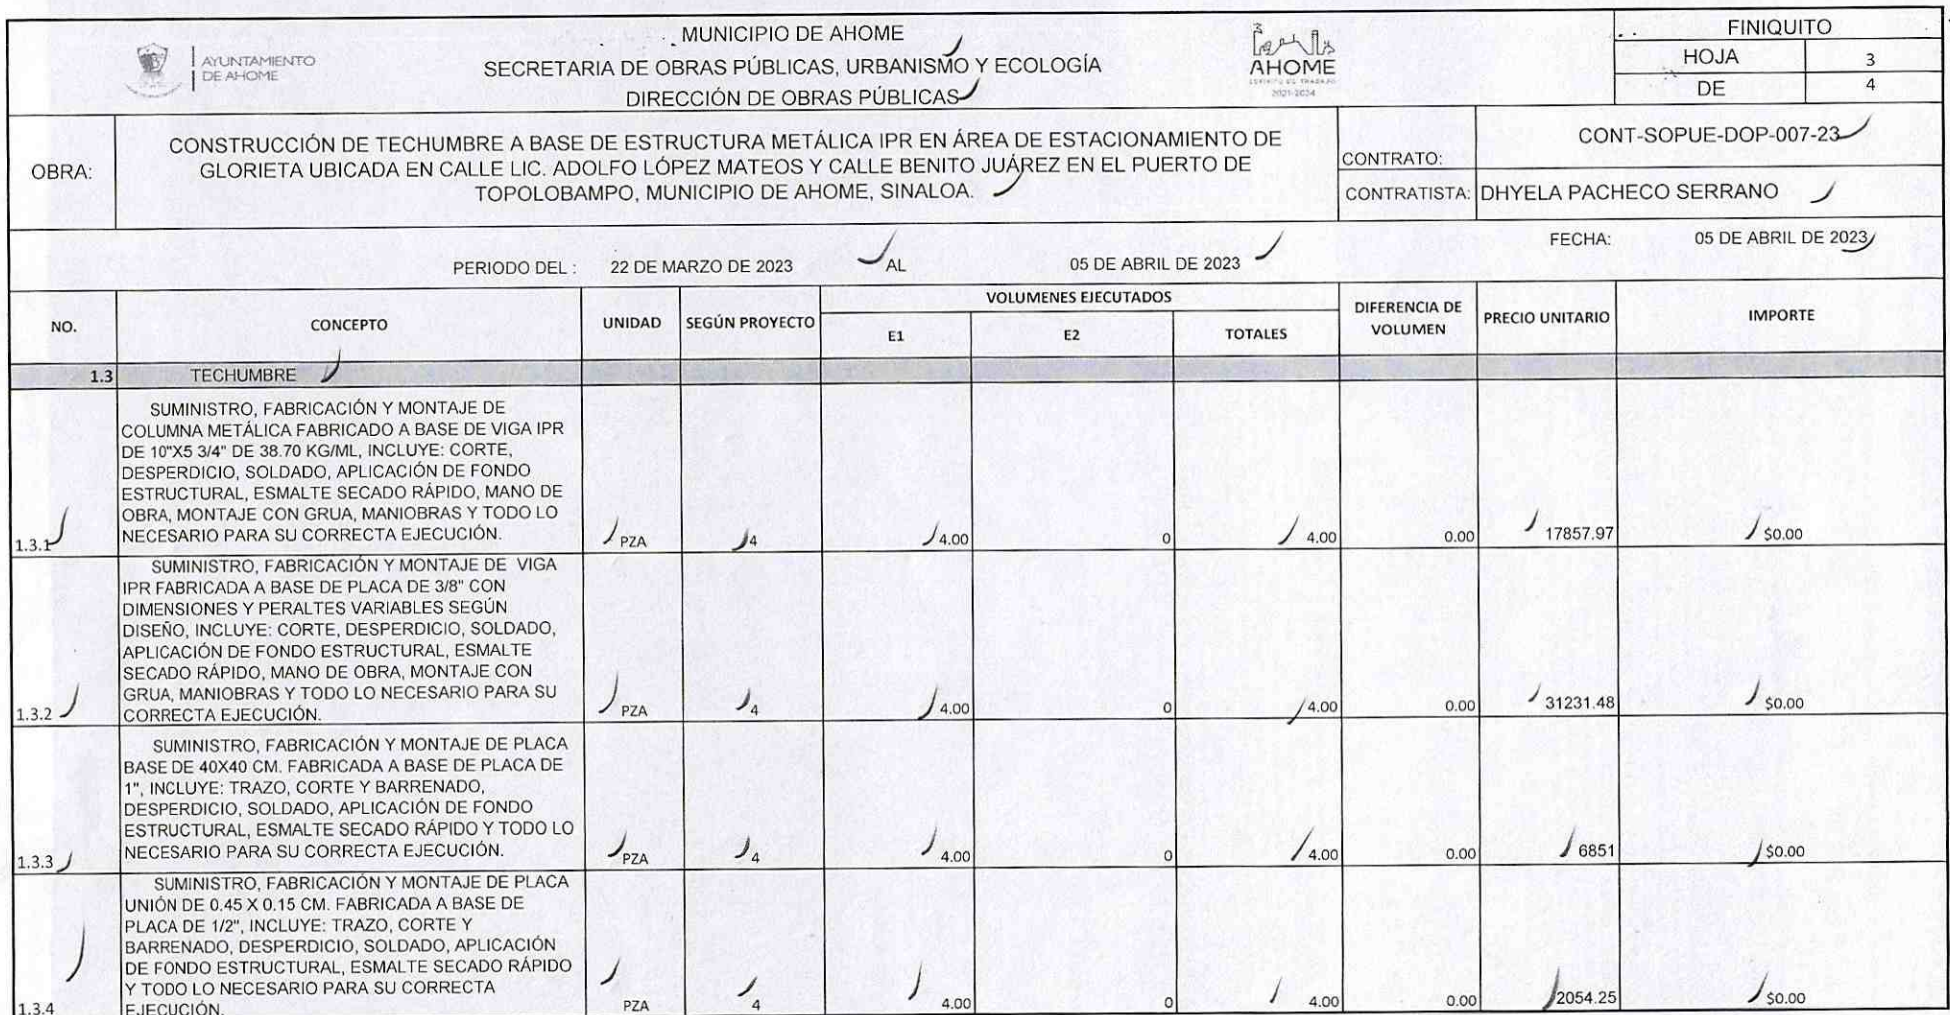 AYUNTAMIENTO
DE AHOME
MUNICIPIO DE AHOME
SECRETARIA DE OBRAS PÚBLICAS, URBANISMO Y ECOLOGÍA
DIRECCIÓN DE OBRAS PÚBLICAS
AHOME
2021-2024
FINIQUITO
HOJA 3
DE 4
OBRA:
CONSTRUCCIÓN DE TECHUMBRE A BASE DE ESTRUCTURA METÁLICA IPR EN ÁREA DE ESTACIONAMIENTO DE
GLORIETA UBICADA EN CALLE LIC. ADOLFO LÓPEZ MATEOS Y CALLE BENITO JUÁREZ EN EL PUERTO DE
TOPOLOBAMPO, MUNICIPIO DE AHOME, SINALOA.
CONTRATO: CONT-SOPUE-DOP-007-23
CONTRATISTA: DHYELA PACHECO SERRANO
PERIODO DEL : 22 DE MARZO DE 2023 AL 05 DE ABRIL DE 2023
FECHA: 05 DE ABRIL DE 2023
NO. CONCEPTO UNIDAD SEGÚN PROYECTO VOLUMENES EJECUTADOS DIFERENCIA DE VOLUMEN PRECIO UNITARIO IMPORTE
E1 E2 TOTALES
1.3 TECHUMBRE
SUMINISTRO, FABRICACIÓN Y MONTAJE DE
COLUMNA METÁLICA FABRICADO A BASE DE VIGA IPR
DE 10"X5 3/4" DE 38.70 KG/ML, INCLUYE: CORTE,
DESPERDICIO, SOLDADO, APLICACIÓN DE FONDO
ESTRUCTURAL, ESMALTE SECADO RÁPIDO, MANO DE
OBRA, MONTAJE CON GRUA, MANIOBRAS Y TODO LO
NECESARIO PARA SU CORRECTA EJECUCIÓN.
1.3.1 PZA 4 4.00 0 4.00 0.00 17857.97 $0.00
SUMINISTRO, FABRICACIÓN Y MONTAJE DE VIGA
IPR FABRICADA A BASE DE PLACA DE 3/8" CON
DIMENSIONES Y PERALTES VARIABLES SEGÚN
DISEÑO, INCLUYE: CORTE, DESPERDICIO, SOLDADO,
APLICACIÓN DE FONDO ESTRUCTURAL, ESMALTE
SECADO RÁPIDO, MANO DE OBRA, MONTAJE CON
GRUA, MANIOBRAS Y TODO LO NECESARIO PARA SU
CORRECTA EJECUCIÓN.
1.3.2 PZA 4 4.00 0 4.00 0.00 31231.48 $0.00
SUMINISTRO, FABRICACIÓN Y MONTAJE DE PLACA
BASE DE 40X40 CM. FABRICADA A BASE DE PLACA DE
1", INCLUYE: TRAZO, CORTE Y BARRENADO,
DESPERDICIO, SOLDADO, APLICACIÓN DE FONDO
ESTRUCTURAL, ESMALTE SECADO RÁPIDO Y TODO LO
NECESARIO PARA SU CORRECTA EJECUCIÓN.
1.3.3 PZA 4 4.00 0 4.00 0.00 6851 $0.00
SUMINISTRO, FABRICACIÓN Y MONTAJE DE PLACA
UNIÓN DE 0.45 X 0.15 CM. FABRICADA A BASE DE
PLACA DE 1/2", INCLUYE: TRAZO, CORTE Y
BARRENADO, DESPERDICIO, SOLDADO, APLICACIÓN
DE FONDO ESTRUCTURAL, ESMALTE SECADO RÁPIDO
Y TODO LO NECESARIO PARA SU CORRECTA
EJECUCIÓN.
1.3.4 PZA 4 4.00 0 4.00 0.00 2054.25 $0.00